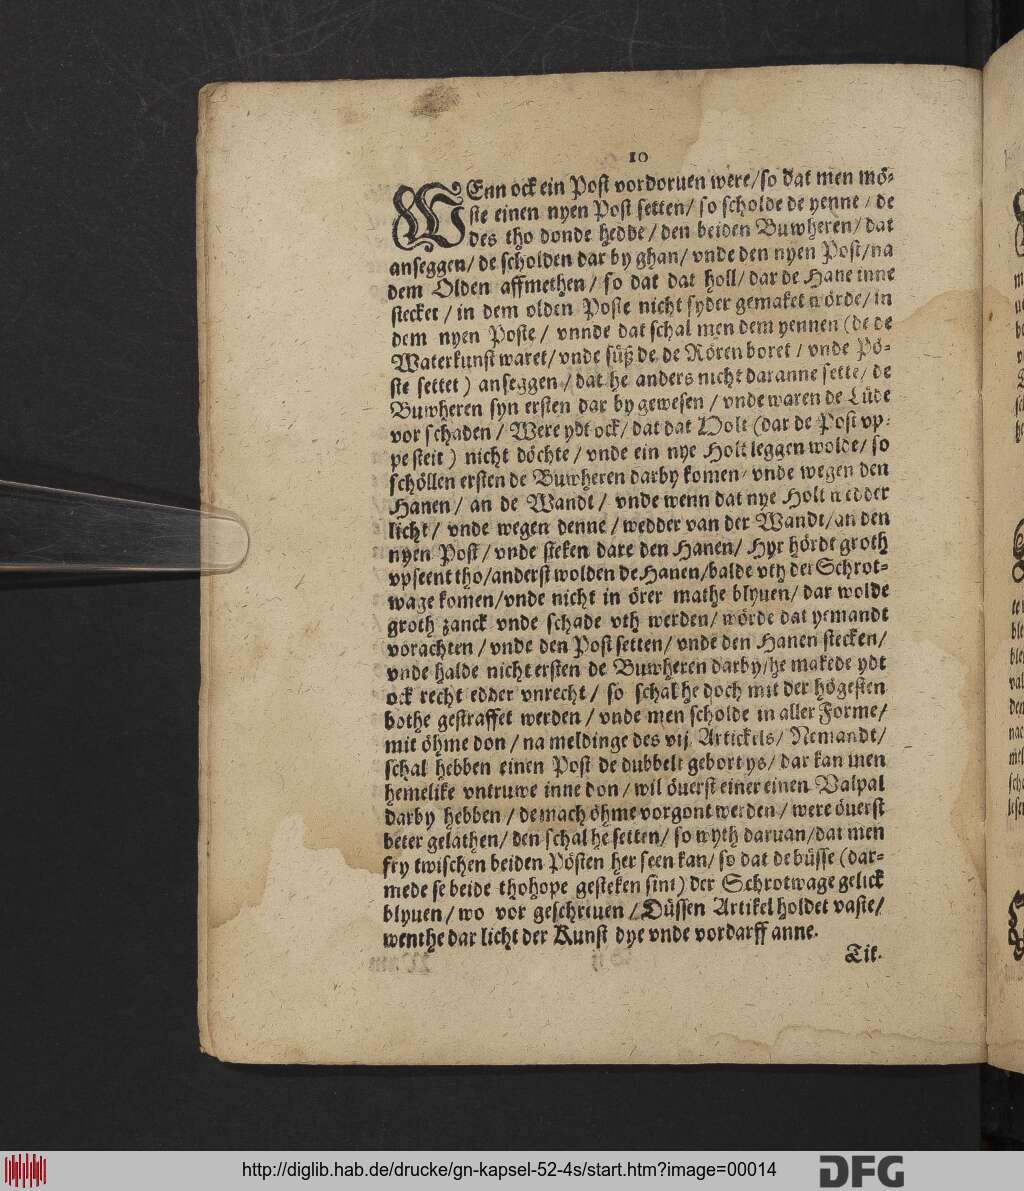 10
WEnn ock ein Post vordoruen were/so dat men mö-
ste einen nyen Post setten/ so scholde de yenne / de
des tho donde hedde/ den beiden Buwheren/ dat
anseggen/ de scholden dar by ghan/ vnde den nyen Post/na
dem Olden affmethen/ so dat dat holl/ dar de Hane inne
stecket / in dem olden Poste nicht syder gemaket wörde/ in
dem nyen Poste/ vnnde dat schal men dem yennen (de de
Waterkunst waret/ vnde süß de de Rören boret / vnde Pö-
ste settet ) anseggen / dat he anders nicht daranne sette/ de
Buwheren syn ersten dar by gewesen / vnde waren de Lüde
vor schaden / Were ydt ock/ dat dat Holt (dar de Post vp-
pe steit ) nicht döchte/ vnde ein nye Holt leggen wolde/ so
schöllen ersten de Buwheren darby komen/ vnde wegen den
Hanen/ an de Wandt/ vnde wenn dat nye Holt nedder
licht/ vnde wegen denne/ wedder van der Wandt/an den
nyen Post/ vnde steken dare den Hanen/ Hyr hördt groth
vpseent tho/anderst wolden de Hanen/balde vth der Schrot-
wage komen/vnde nicht in örer mathe blyuen/ dar wolde
groth zanck vnde schade vth werden/ wörde dat yemandt
vorachten / vnde den Post setten/ vnde den Hanen stecken/
vnde halde nicht ersten de Buwheren darby/he makede ydt
ock recht edder vnrecht/ so schal he doch mit der högesten
bothe gestraffet werden / vnde men scholde in aller Forme/
mit öhme don / na meldinge des vij. Artickels/ Nemandt/
schal hebben einen Post de dubbelt gebort ys/ dar kan men
hemelike vntruwe inne don/ wil öuerst einer einen Valpal
darby hebben / de mach öhme vorgont werden/ were öuerst
beter gelathen/ den schal he setten/ so wyth daruan/dat men
fry twischen beiden Pösten her seen kan/ so dat de büsse (dar-
mede se beide thohope gesteken sint) der Schrotwage gelick
blyuen/ wo vor geschreuen / Düssen Artikel holdet vaste/
wenthe dar licht der Kunst dye vnde vordarff anne.
Tit.
http://diglib.hab.de/drucke/gn-kapsel-52-4s/start.htm?image=00014
DFG